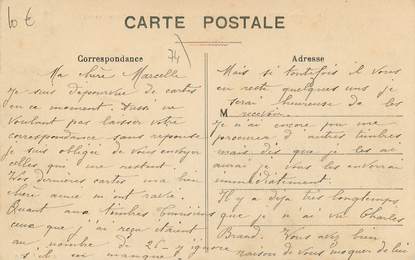 10 €
CARTE POSTALE
74
Correspondance
Adresse
Ma chère Marcelle
Je suis dépourvue de cartes
en ce moment. Aussi ne
voulant pas laisser votre
correspondance sans réponse
je suis obligée de vous envoyer
celles qui me restent.
Vos dernières cartes ma bien
chère amie m'ont ravie.
Quant aux timbres Tunisiens
ceux que j'ai reçu étaient
au nombre de 25 - j'ignore
s'il en manque
Mais si toutefois il vous
en reste quelques uns je
serai heureuse de les
M recevoir
Je n'ai encore pu me
procurer d'autres timbres
mais dès que je les
aurai je vous les enverrai
immédiatement.
Il y a déjà très longtemps
que je n'ai vu Charles
Brand. Vous avez bien
raison de vous moquer de lui